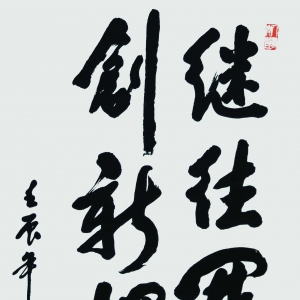 继往開
創新
壬辰年